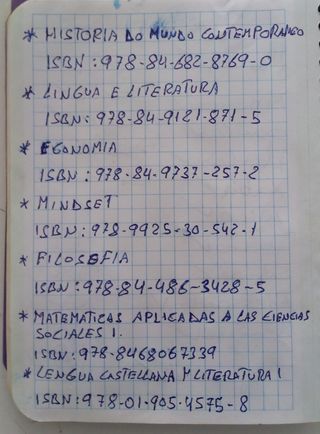 * HISTORIA DO MUNDO CONTEMPORANEO
ISBN: 978-84-682-8769-0
* LINGUA E LITERATURA
ISBN: 978-84-9121-871-5
* ECONOMIA
ISBN: 978-84-9737-257-2
* MINDSET
ISBN: 978-9925-30-542-1
* FILOSEFIA
ISBN: 978-84-486-3428-5
* MATEMATICAS APLICADAS A LAS CIENCIAS
SOCIALES 1.
ISBN: 978-8468067339
* LENGUA CASTELLANA Y LITERATURA I
ISBN: 978-01-905-4575-8